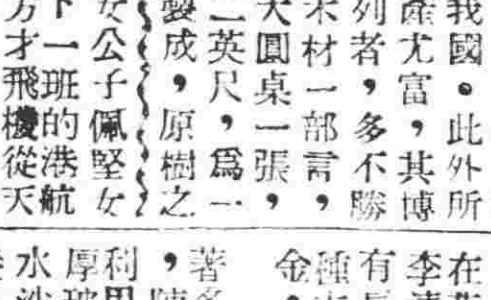 我國。此外所
產尤富，其博
列者，多不勝
木材一部言，
大圓桌一張，
二英尺，爲一
成，原樹之
女公子佩堅女
下一班的港航
方才飛機從天
在
李
有
種
金
著
，
利
厚
水